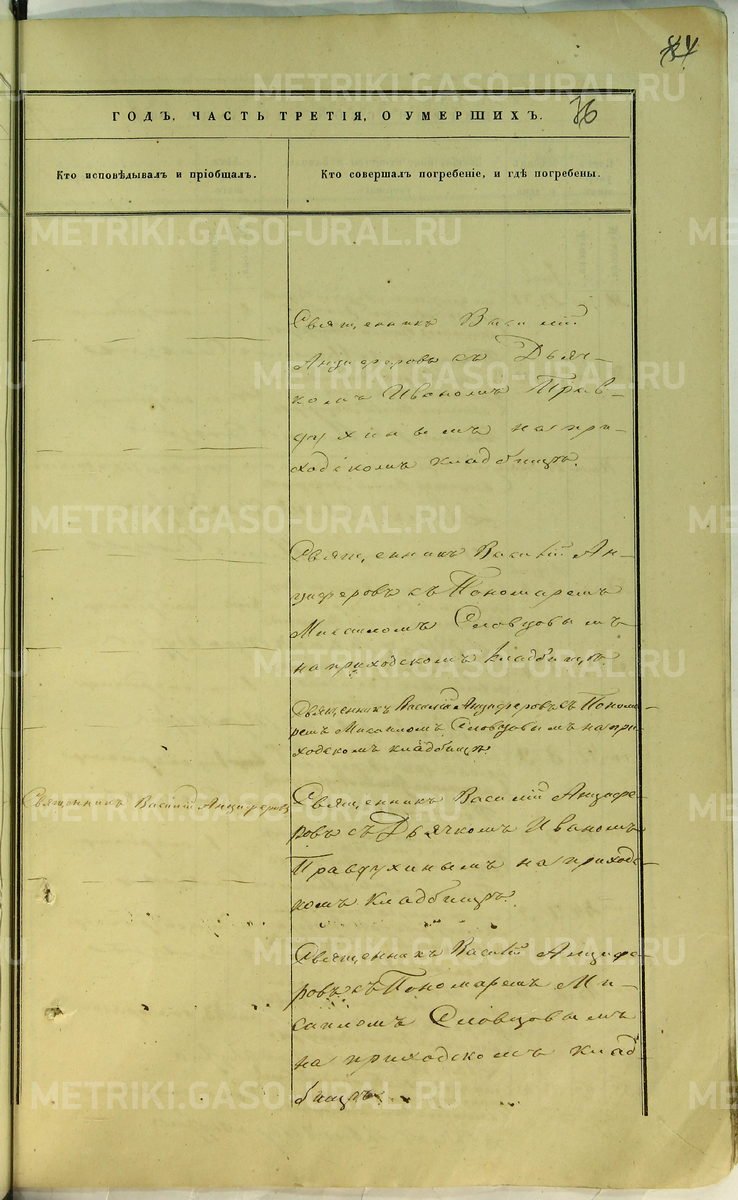 84
ГОДЪ, ЧАСТЬ ТРЕТІЯ, О УМЕРШИХЪ.
76
Кто исповѣдывалъ и пріобщалъ.
Кто совершалъ погребеніе, и гдѣ погребены.
Священникъ Василій
Анциферовъ съ Дьяч-
комъ Иваномъ Прав-
духинымъ на при-
ходскомъ кладбищѣ.
Священникъ Василій Ан-
циферовъ съ Пономаремъ
Михаиломъ Словцовымъ
на приходскомъ кладбищѣ
Священникъ Василій Анциферовъ съ Понома-
ремъ Михаиломъ Словцовымъ на при-
ходскомъ кладбищѣ.
Священникъ Василій Анциферовъ
Священникъ Василій Анцифе-
ровъ съ Дьячкомъ Иваномъ
Правдухинымъ на приходс-
комъ кладбищѣ.
Священникъ Василій Анцифе-
ровъ съ Пономаремъ Ми-
хаиломъ Словцовымъ
на приходскомъ клад-
бищѣ.
METRIKI.GASO-URAL.RU